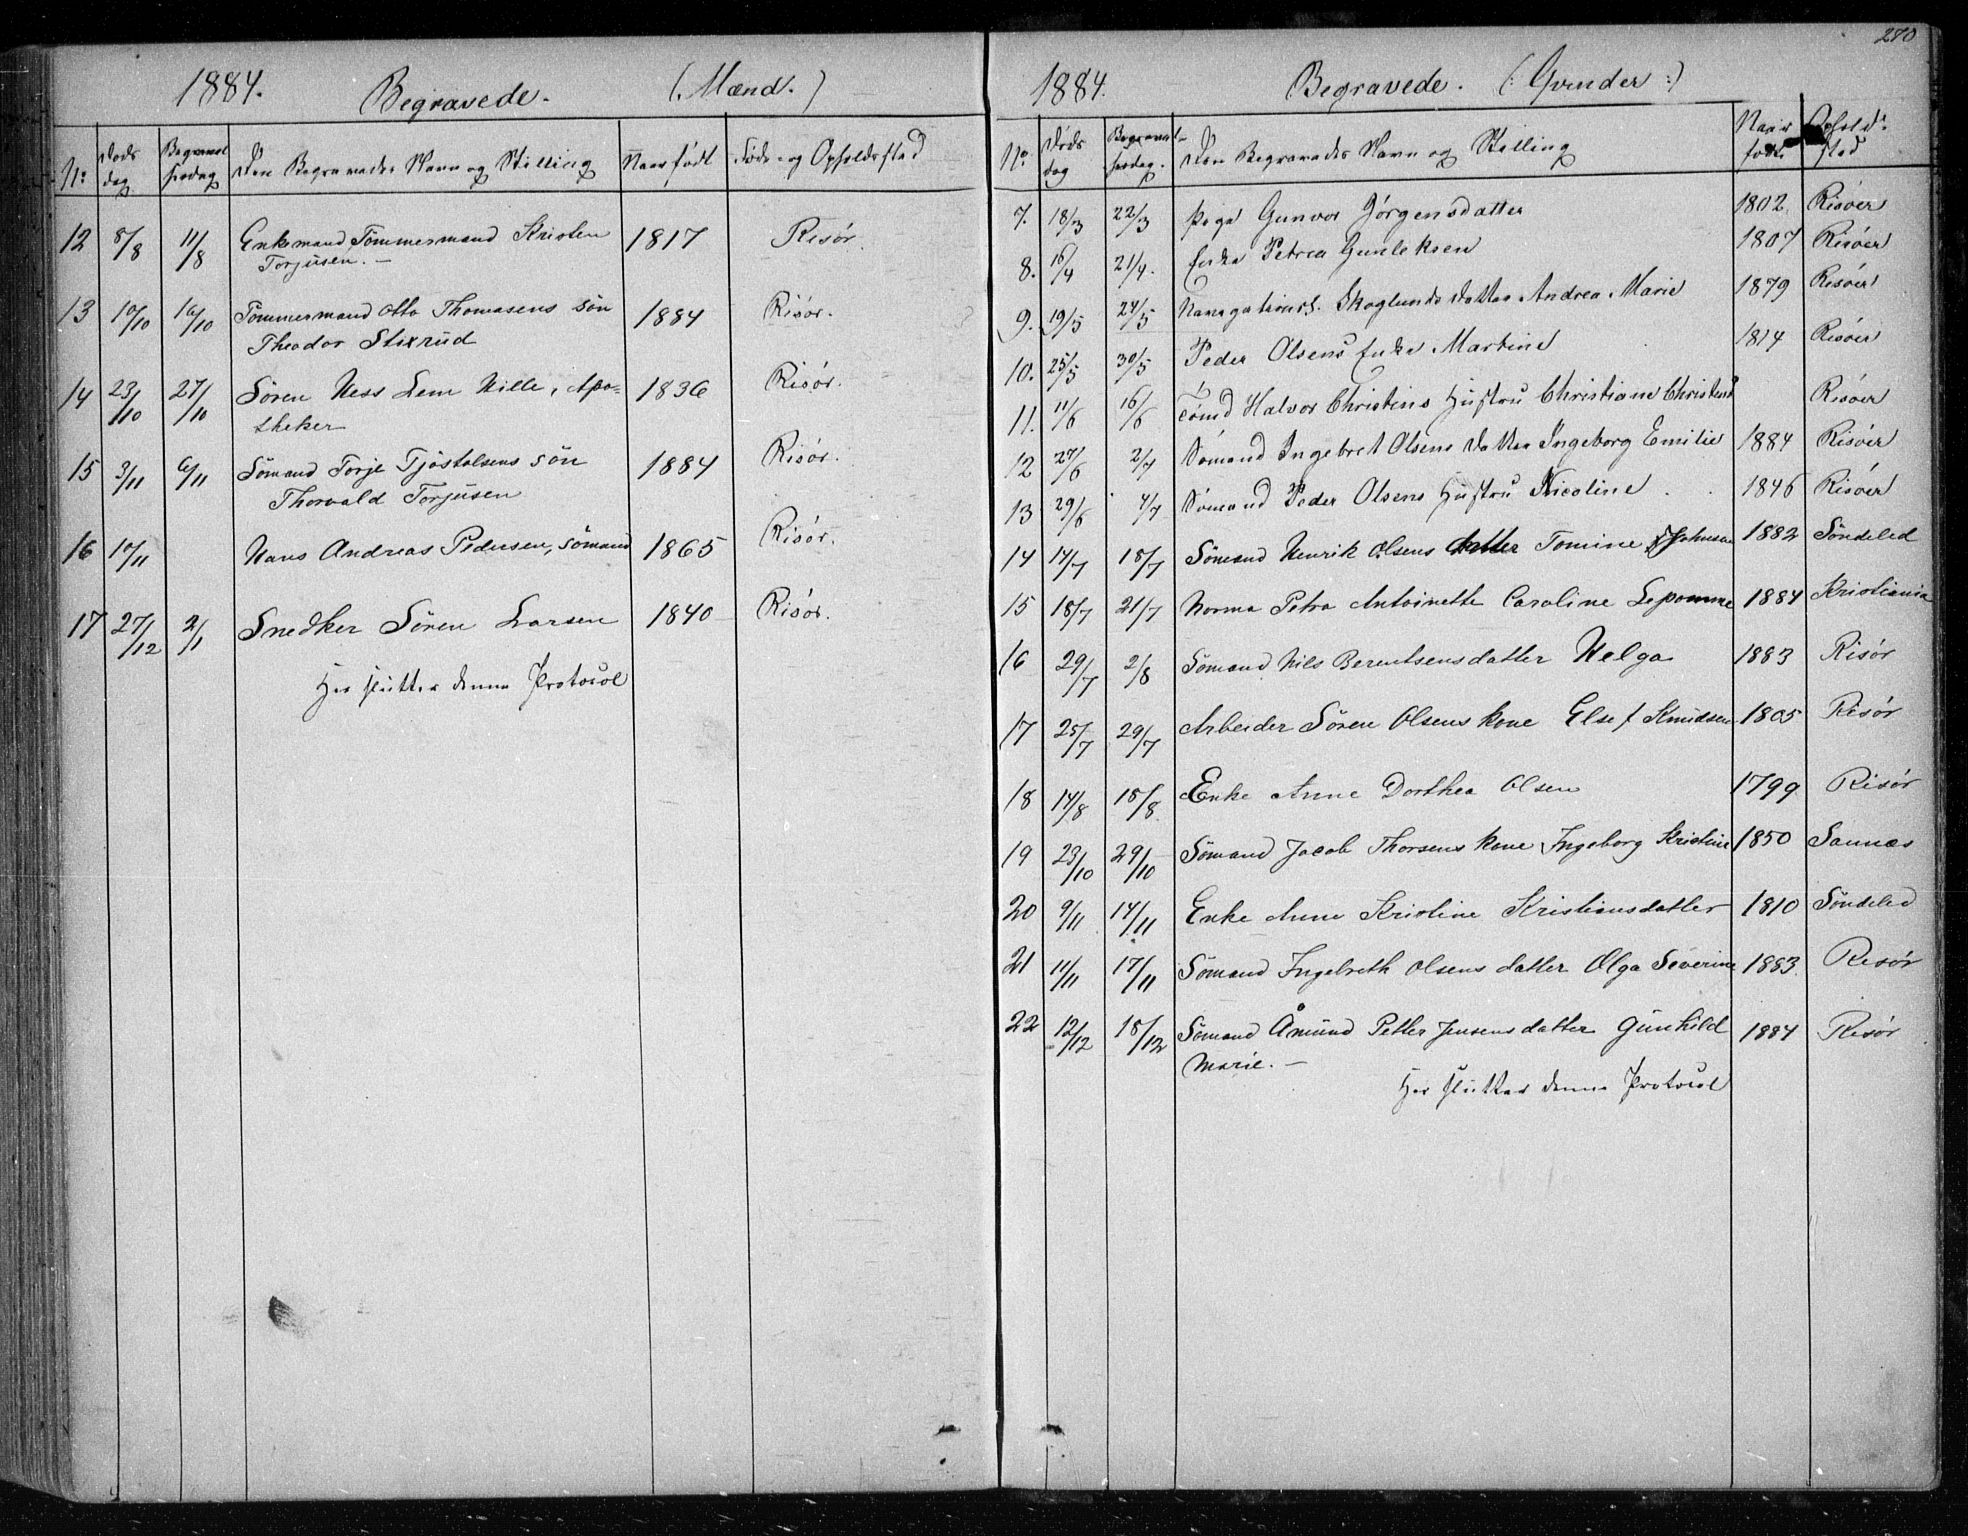 1884. Begravede. (Mænd.)
No Døds dag Begravelsesdag Den Begravedes Navn og Stilling Naar født Føde- og Opholdsstad
12 8/8 11/8 Enkemand Tømmermand Kristen 1817 Risør.
Torjusen. —
13 10/10 16/10 Tømmermand Otto Thomasens søn 1884 Risør.
Theodor Stixrud
14 23/10 27/10 Søren Hess Lem Hille, Apo= 1836 Risør.
theker
15 3/11 6/11 Sømand Torje Tjøstolsens søn 1884 Risør.
Thorvald Torjusen
16 10/11 Hans Andreas Pedersen, sømand 1865 Risør.
17 27/12 2/1 Snedker Søren Larsen 1840 Risør.
Her slutter denne Protocol
270
1884. Begravede. (: Qvinder :)
No. Døds dag Begravelsesdag. Den Begravedes Navn og Stilling Naar født Opholdsstad
7. 18/3 22/3 Pige Gunvor Jørgensdatter 1802 Risøer
8. 16/4 21/4. Enke Petrea Gunleksen 1807 Risøer
9. 19/5 24/5 Skoglunds datter Andrea Marie 1879 Risøer
10. 25/5 30/5 Peder Olsens Enke Martine 1814 Risøer
11. 11/6 16/6 Tømd Halvor Christens Hustru Christiane Christensd Risøer
12 27/6 2/7 Sømand Ingebret Olsens datter Ingeborg Emilie 1884 Risøer
13 29/6 4/7 Sømand Peder Olsens Hustru Nicoline 1846 Risøer
14 14/7 18/7 Sømand Henrik Olsens datter Tomine Johnsen 1882 Søndeled
15 18/7 21/7 Norma Petra Antoinette Caroline Lepomme 1884 Kristiania
16 29/7 2/8 Sømand Nils Berentsens datter Helga 1883 Risør
17 25/7 29/7 Arbeider Søren Olsens kone Else f Knudsen 1805 Risør
18 14/8 18/8 Enke Anne Dorthea Olsen 1799 Risør
19 23/10 29/10 Sømand Jacob Thorsens kone Ingeborg Kristine 1850 Sannæs
20 9/11 14/11 Enke Anne Kristine Kristiansdatter 1810 Søndeled
21 11/11 17/11 Sømand Ingebreth Olsens datter Olga Severine 1883 Risør
22 12/12 18/12 Sømand Åmund Petter Jensens datter Gunhild 1884 Risør
Marie. —
Her slutter denne Protocol